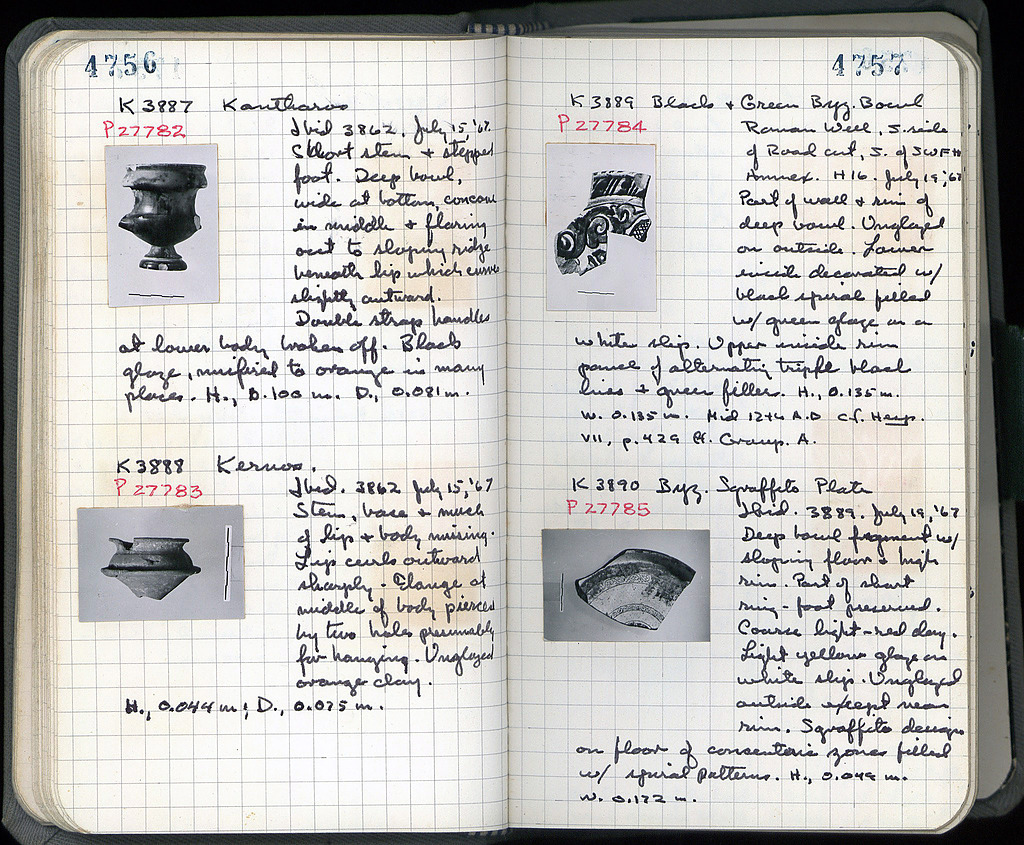 4756
K 3887 Kantharos
P 27782
Ibid 3862. July 15, '67.
Short stem + stepped
foot. Deep bowl,
wide at bottom, concave
in middle + flaring
out to sloping ridge
beneath lip which curves
slightly outward.
Double strap handles
at lower body broken off. Black
glaze, misfired to orange in many
places. H., 0.100 m. D., 0.081 m.
K 3888 Kernos.
P 27783
Ibid. 3862 July 15, '67
Stem, base + much
of lip + body missing.
Lip curls outward
sharply. Flange at
middle of body pierced
by two holes presumably
for hanging. Unglazed
orange clay.
H., 0.044 m; D., 0.075 m.
4757
K 3889 Black + Green Byz. Bowl
P 27784
Roman Well, S. side
of Road cut, S. of SWFH
Annex. H 16. July 19, '67
Part of wall + rim of
deep bowl. Unglazed
on outside. Lower
inside decorated w/
black spiral filled
w/ green glaze on a
white slip. Upper inside rim
panel of alternating triple black
lines + green fillers. H., 0.135 m.
W. 0.135 m. Mid 12th A.D cf. Hesp.
VII, p. 429 ff. Group. A.
K 3890 Byz. Sgraffito Plate
P 27785
Ibid. 3889. July 19, '67
Deep bowl fragment w/
sloping floor + high
rim. Part of short
ring-foot preserved.
Coarse light-red clay.
Light yellow glaze on
white slip. Unglazed
outside except near
rim. Sgraffito designs
on floor of consenteric zones filled
w/ spiral patterns. H., 0.049 m.
W. 0.172 m.